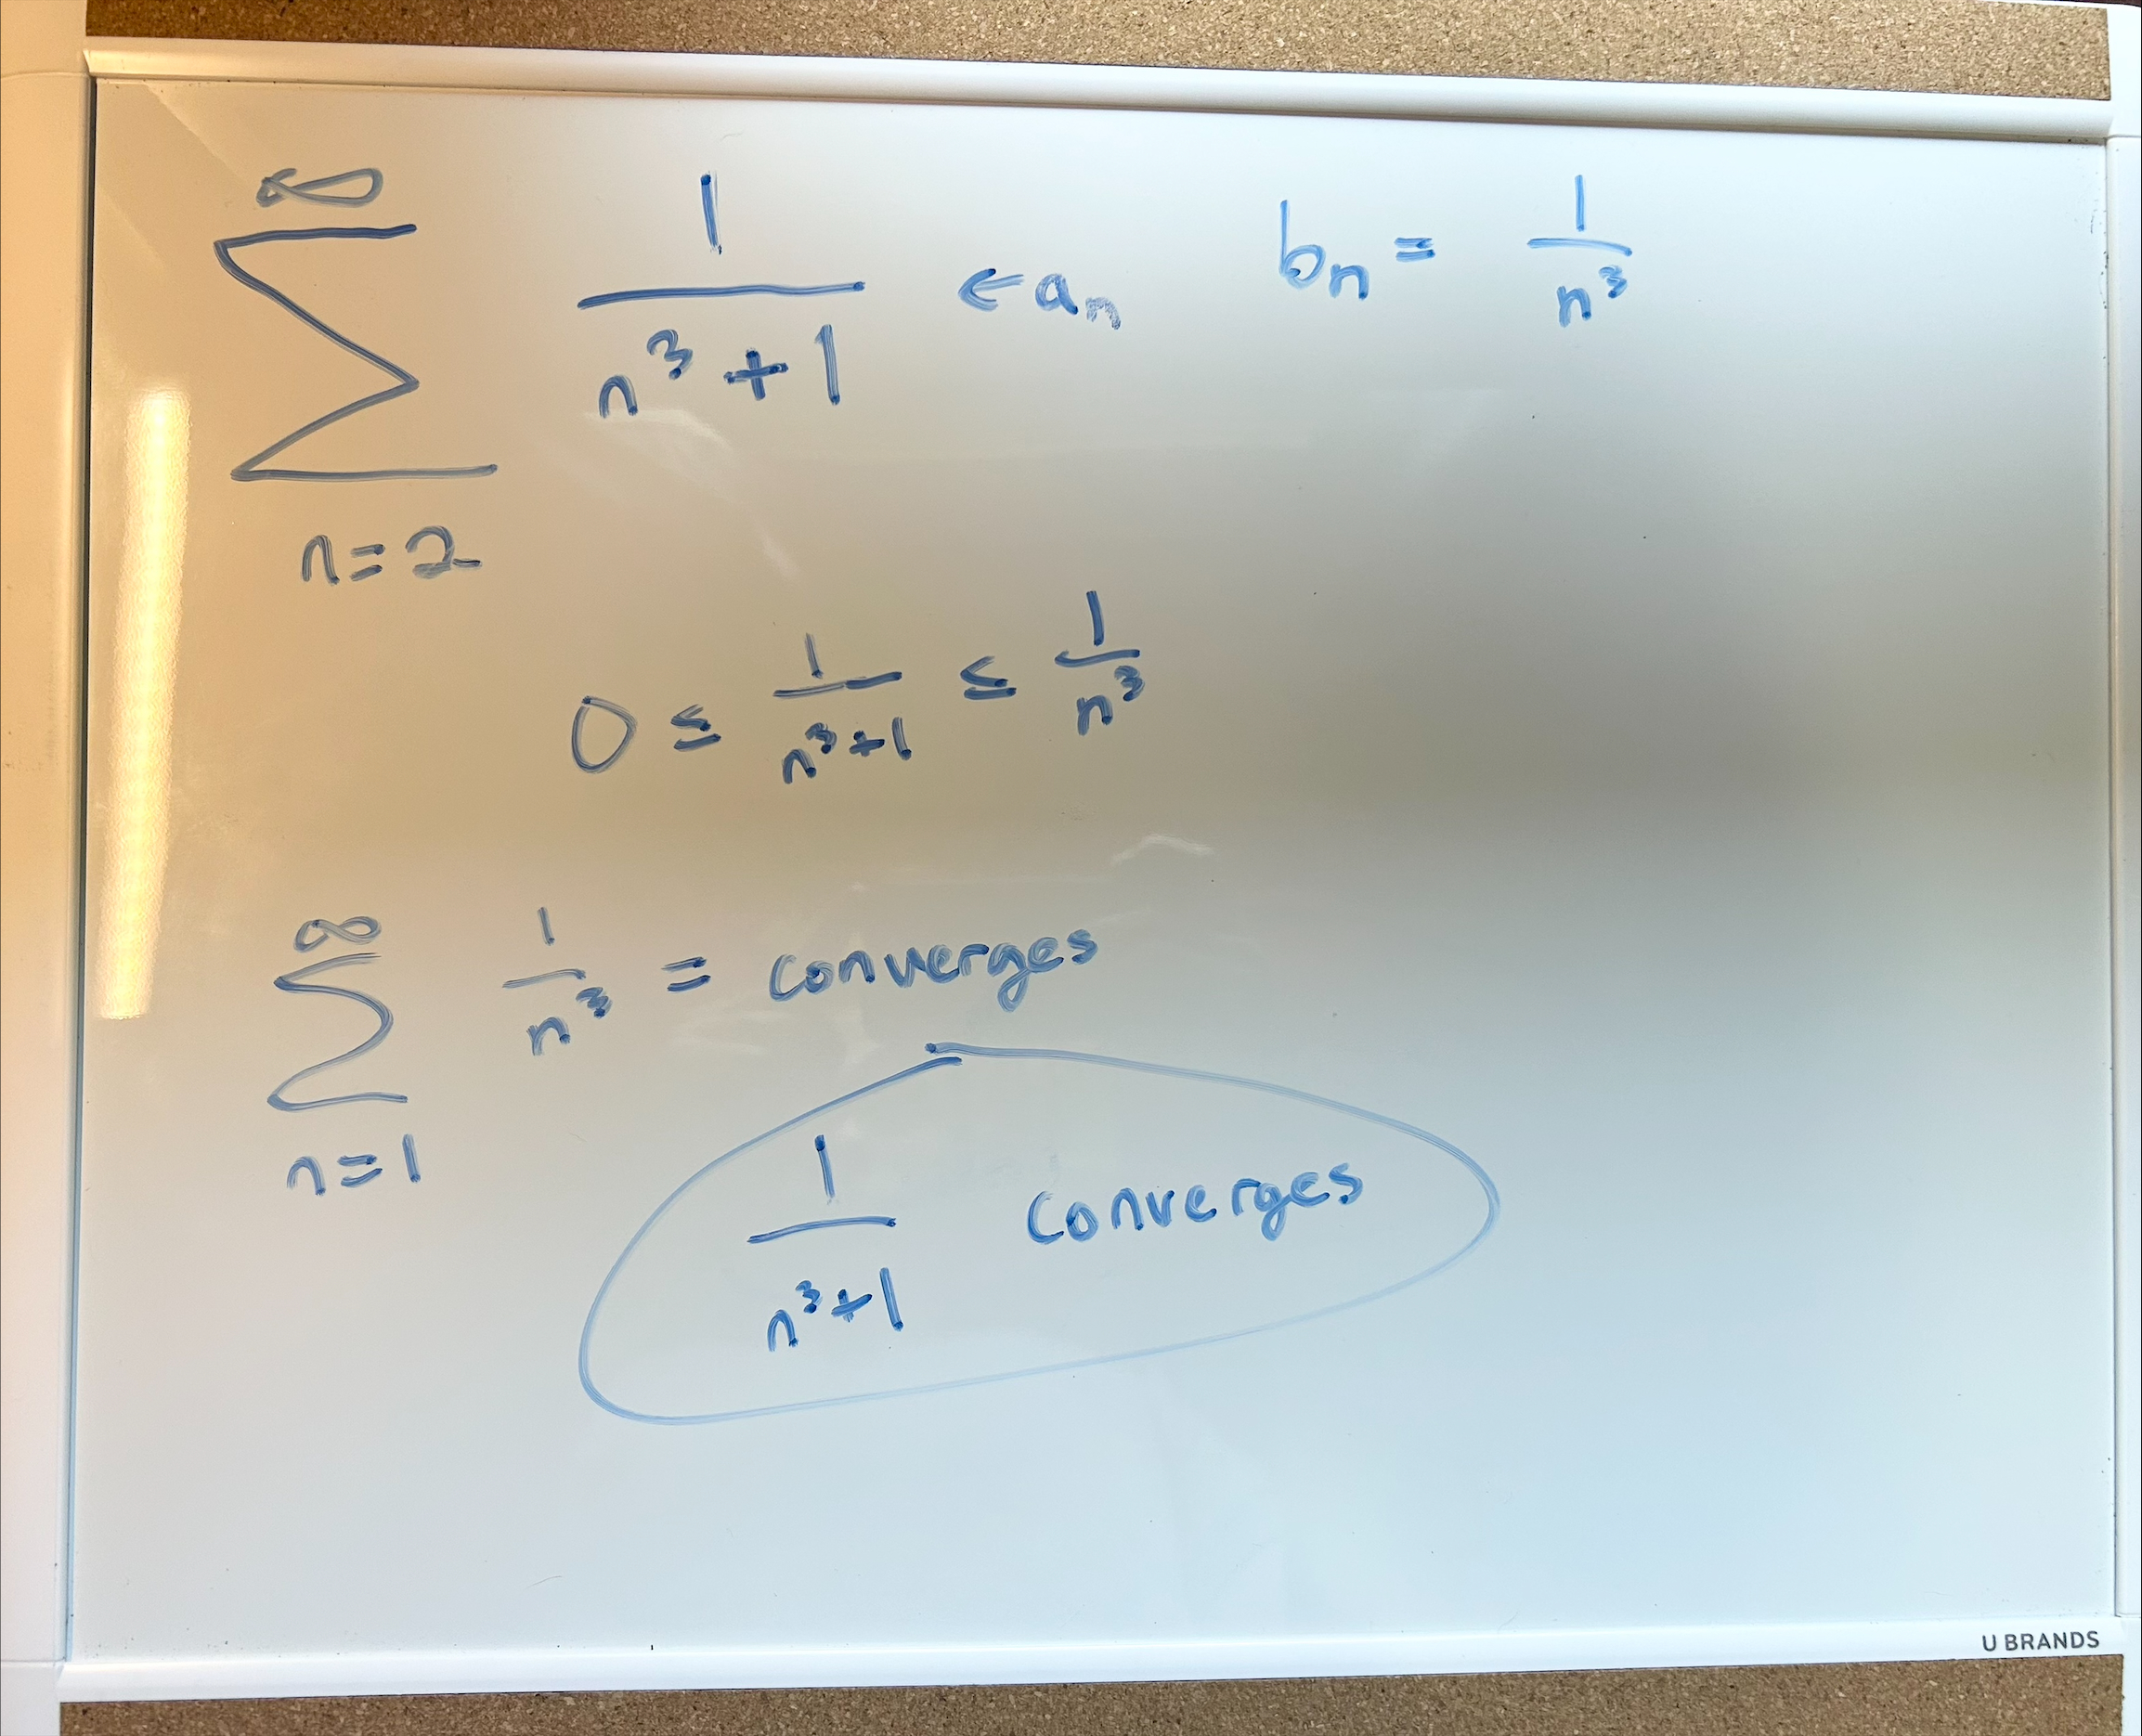 ∞
∑ 1/(n³+1) ← aₙ bₙ = 1/n³
n=2
0 ≤ 1/(n³+1) ≤ 1/n³
∞
∑ 1/n³ = converges
n=1
1/(n³+1) converges
U BRANDS